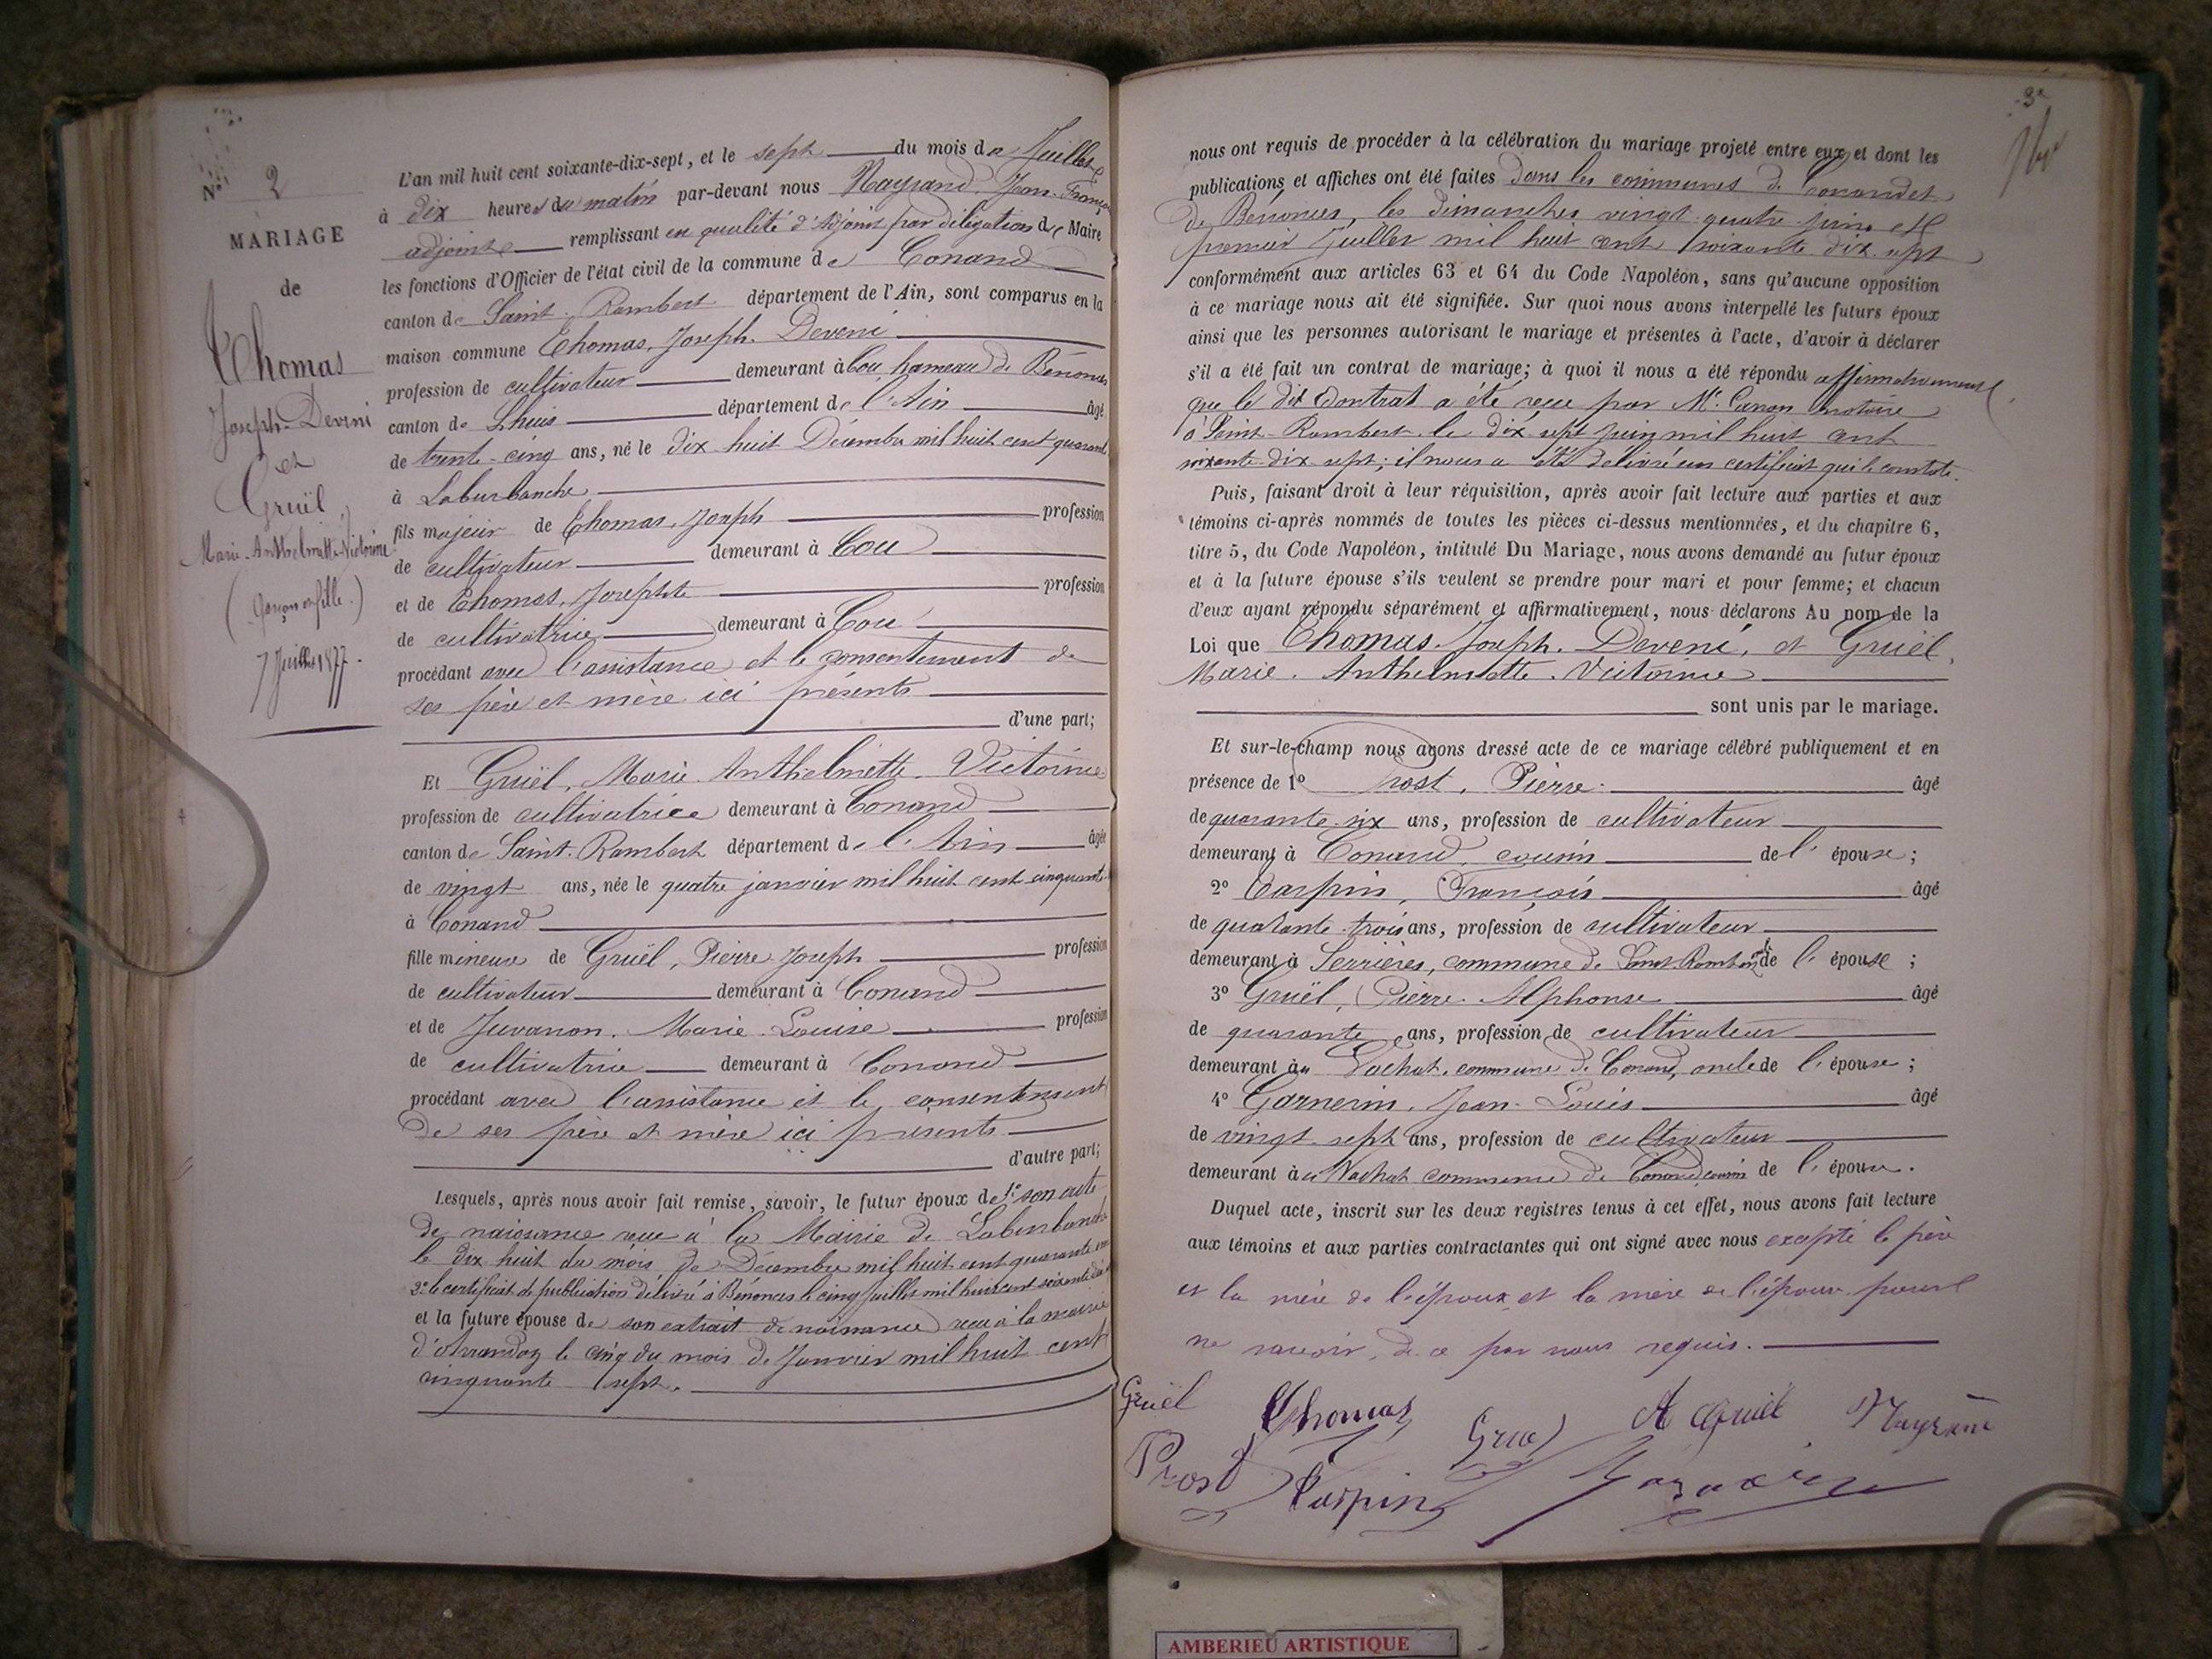 N° 2
MARIAGE
de
Thomas
Joseph-Deveni
et
Gruël,
Marie-Anthelmette-Victorine
(garçon et fille.)
7 Juillet 1877.
L'an mil huit cent soixante-dix-sept, et le sept du mois de Juillet
à dix heures du matin par-devant nous Mayrand Jean-François
adjoint remplissant en qualité d'Adjoint par délégation de Maire
les fonctions d'Officier de l'état civil de la commune de Conand
canton de Saint-Rambert département de l'Ain, sont comparus en la
maison commune Thomas, Joseph. Deveni
profession de cultivateur demeurant à Cou, hameau de Bénonces
canton de Lhuis département de l'Ain âgé
de trente-cinq ans, né le dix huit Décembre mil huit cent quarante
à Laburbanche
fils majeur de Thomas, Joseph profession
de cultivateur demeurant à Cou
et de Thomas, Josephte profession
de cultivatrice demeurant à Cou
procédant avec l'assistance et le consentement de
ses père et mère ici présents
d'une part;
Et Gruël, Marie Anthelmette. Victorine
profession de cultivatrice demeurant à Conand
canton de Saint-Rambert département de l'Ain âgée
de vingt ans, née le quatre janvier mil huit cent cinquante
à Conand
fille mineure de Gruël, Pierre Joseph profession
de cultivateur demeurant à Conand
et de Juvanon. Marie-Louise profession
de cultivatrice demeurant à Conand
procédant avec l'assistance et le consentement
de ses père et mère ici présents
d'autre part;
Lesquels, après nous avoir fait remise, savoir, le futur époux de 1° son acte
de naissance reçu à la Mairie de Laburbanche
le dix huit du mois de Décembre mil huit cent quarante un
2° le certificat de publication délivré à Bénonces le cinq juillet mil huit cent soixante dix
et la future épouse de son extrait de naissance reçu à la mairie
d'Arrandaz le cinq du mois de Janvier mil huit cent
cinquante sept.
3e
nous ont requis de procéder à la célébration du mariage projeté entre eux et dont les
publications et affiches ont été faites dans les communes de Conand et
de Bénonces, les dimanches vingt-quatre juin et
premier Juillet mil huit cent soixante dix-sept
conformément aux articles 63 et 64 du Code Napoléon, sans qu'aucune opposition
à ce mariage nous ait été signifiée. Sur quoi nous avons interpellé les futurs époux
ainsi que les personnes autorisant le mariage et présentes à l'acte, d'avoir à déclarer
s'il a été fait un contrat de mariage; à quoi il nous a été répondu affirmativement
que le dit Contrat a été reçu par Me notaire
à Saint-Rambert le dix sept juin mil huit cent
soixante-dix sept; il nous a été délivré un certificat qui le constate.
Puis, faisant droit à leur réquisition, après avoir fait lecture aux parties et aux
témoins ci-après nommés de toutes les pièces ci-dessus mentionnées, et du chapitre 6,
titre 5, du Code Napoléon, intitulé Du Mariage, nous avons demandé au futur époux
et à la future épouse s'ils veulent se prendre pour mari et pour femme; et chacun
d'eux ayant répondu séparément et affirmativement, nous déclarons Au nom de la
Loi que Thomas. Joseph. Deveni, et Gruël,
Marie. Anthelmette. Victorine
sont unis par le mariage.
Et sur-le-champ nous avons dressé acte de ce mariage célébré publiquement et en
présence de 1° Prost, Pierre. âgé
de quarante-six ans, profession de cultivateur
demeurant à Conand, cousin de l'épouse;
2° Carpin, François âgé
de quarante-trois ans, profession de cultivateur
demeurant à Serrières, commune de Saint-Rambert de l'épouse;
3° Gruël, Pierre-Alphonse âgé
de quarante ans, profession de cultivateur
demeurant au Vachat, commune de Conand, oncle de l'épouse;
4° Garnerin, Jean-Louis âgé
de vingt-sept ans, profession de cultivateur
demeurant au Vachat commune de Conand cousin de l'épouse.
Duquel acte, inscrit sur les deux registres tenus à cet effet, nous avons fait lecture
aux témoins et aux parties contractantes qui ont signé avec nous excepté le père
et la mère de l'époux et la mère de l'épouse pour
ne savoir, de ce par nous requis.
Gruël Thomas Gruel A Gruël Mayrand
Prost Carpin
AMBERIEU ARTISTIQUE